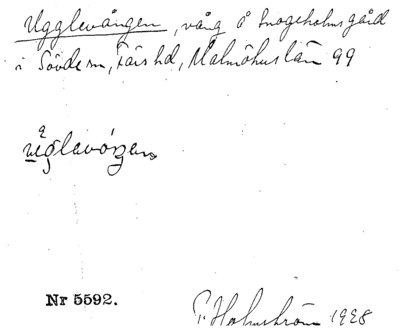 Ugglevången, vång å Snogeholms gård
i Sövde sn, Färs hd, Malmöhus län 99
Nr 5592.
T. Holmström 1928